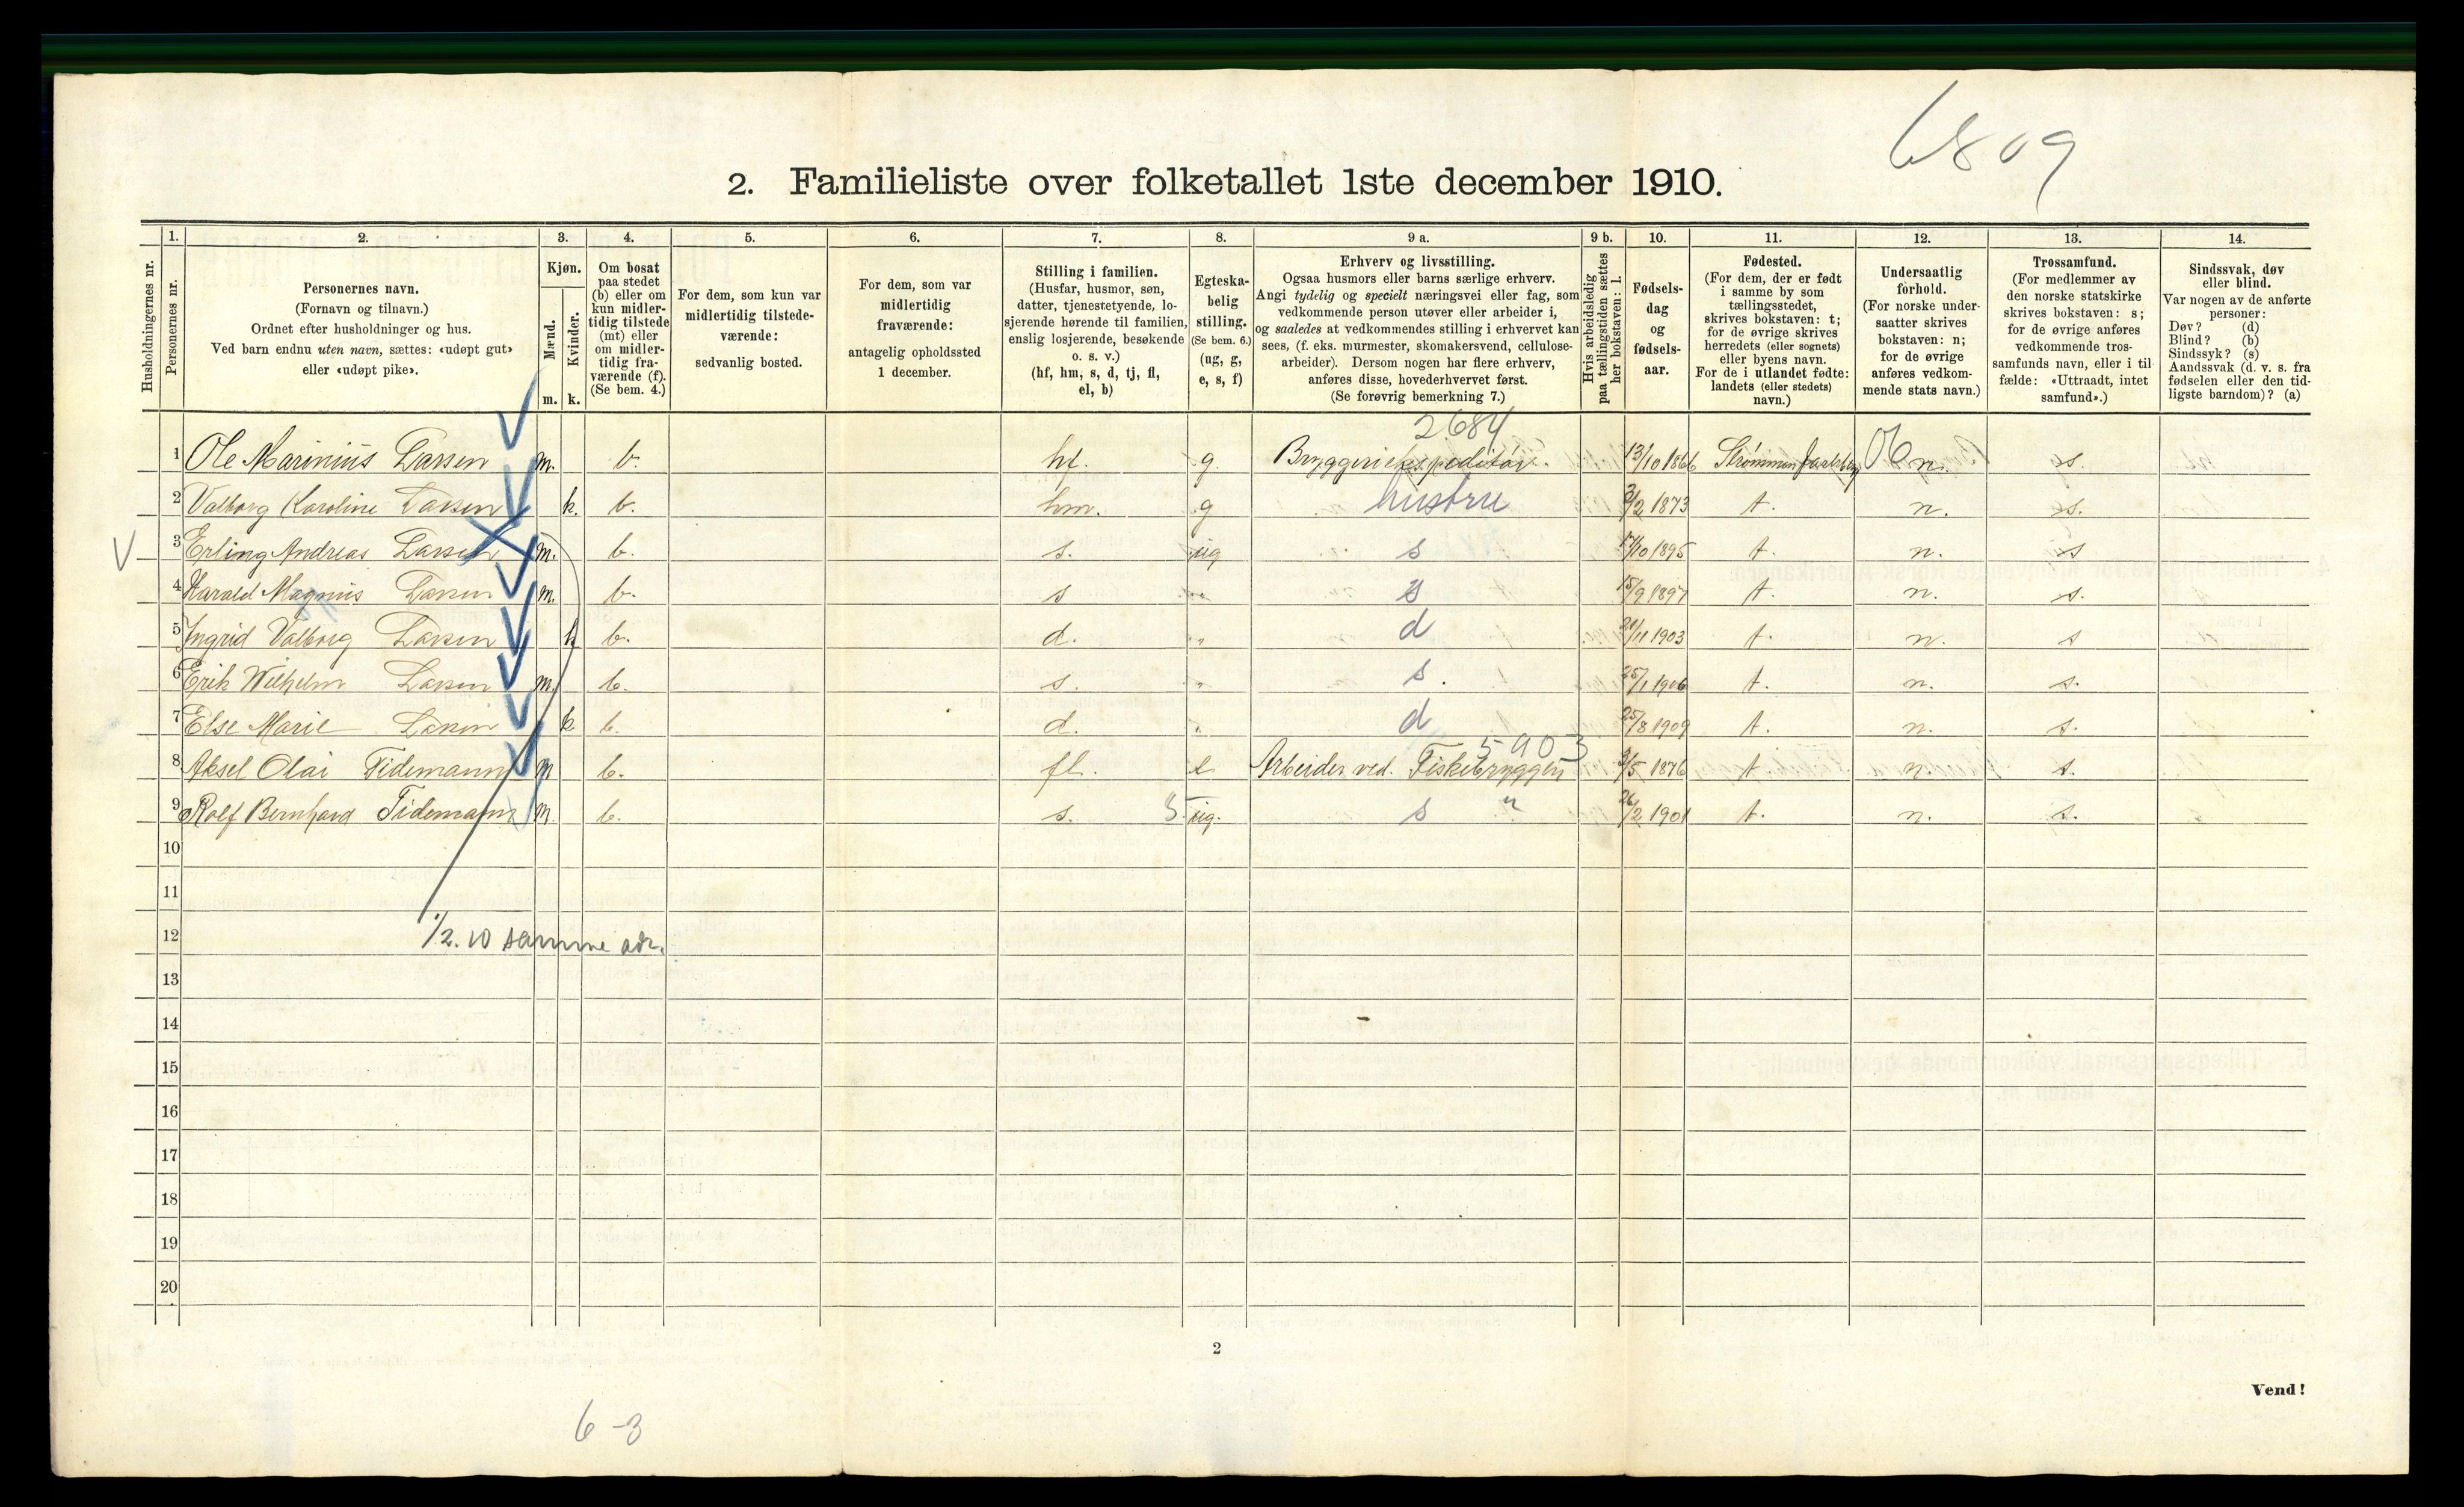 6809
2. Familieliste over folketallet 1ste december 1910.
Husholdningernes nr.
1. Personernes nr.
2. Personernes navn. (Fornavn og tilnavn.) Ordnet efter husholdninger og hus. Ved barn endnu uten navn, sættes: «udøpt gut» eller «udøpt pike».
3. Kjøn. Mænd. m. Kvinder. k.
4. Om bosat paa stedet (b) eller om kun midlertidig tilstede (mt) eller om midlertidig fraværende (f). (Se bem. 4.)
5. For dem, som kun var midlertidig tilstedeværende: sedvanlig bosted.
6. For dem, som var midlertidig fraværende: antagelig opholdssted 1 december.
7. Stilling i familien. (Husfar, husmor, søn, datter, tjenestetyende, losjerende hørende til familien, enslig losjerende, besøkende o. s. v.) (hf, hm, s, d, tj, fl, el, b)
8. Egteskabelig stilling. (Se bem. 6.) (ug, g, e, s, f)
9 a. Erhverv og livsstilling. Ogsaa husmors eller barns særlige erhverv. Angi tydelig og specielt næringsvei eller fag, som vedkommende person utøver eller arbeider i, og saaledes at vedkommendes stilling i erhvervet kan sees, (f. eks. murmester, skomakersvend, cellulosearbeider). Dersom nogen har flere erhverv, anføres disse, hovederhvervet først. (Se forøvrig bemerkning 7.)
9 b. Hvis arbeidsledig paa tællingstiden sættes her bokstaven: l.
10. Fødselsdag og fødselsaar.
11. Fødested. (For dem, der er født i samme by som tællingsstedet, skrives bokstaven: t; for de øvrige skrives herredets (eller sognets) eller byens navn. For de i utlandet fødte: landets (eller stedets) navn.)
12. Undersaatlig forhold. (For norske undersaatter skrives bokstaven: n; for de øvrige anføres vedkommende stats navn.)
13. Trossamfund. (For medlemmer av den norske statskirke skrives bokstaven: s; for de øvrige anføres vedkommende trossamfunds navn, eller i tilfælde: «Uttraadt, intet samfund».)
14. Sindssvak, døv eller blind. Var nogen av de anførte personer: Døv? (d) Blind? (b) Sindssyk? (s) Aandssvak (d. v. s. fra fødselen eller den tidligste barndom)? (a)
2684
1 Ole Marinius Larsen m. b. hf. g. Bryggeriekspeditør. 13/10 1866 Strømmen Jarlsberg 06 n. s.
2 Valborg Karoline Larsen k. b. hm. g hustru 3/2 1873 t. n. s.
V 3 Erling Andreas Larsen m. b. s. ug s 17/10 1895 t. n. s
4 Harald Magnus Larsen m. b. s " s 15/9 1897 t. n. s.
5 Ingrid Valborg Larsen k b. d. " d 21/11 1903 t. n. s
6 Erik Wilhelm Larsen m. b. s. " s. 25/1 1906 t. n. s.
7 Else Marie Larsen k b. d. " d 25/8 1909 t. n. s.
5903
8 Aksel Olai Tidemann m b. fl. e Arbeider ved. Fiskebryggen 3/5 1876 t. n. s.
9 Rolf Bernhard Tidemann m. b. s. 5 ug. s " 26/2 1901 t. n. s.
10
11
12 1/2.10 samme adr.
13
14
15
16
17
18
19
20
2
Vend!
6-3